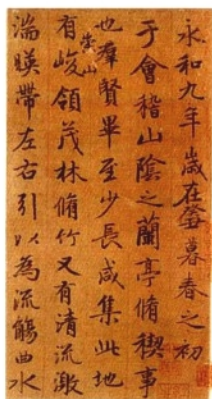 永和九年歲在癸丑暮春之初
于會稽山陰之蘭亭脩稧事
也羣賢畢至少長咸集此地
有崇山峻領茂林脩竹又有清流激
湍暎帶左右引以為流觴曲水